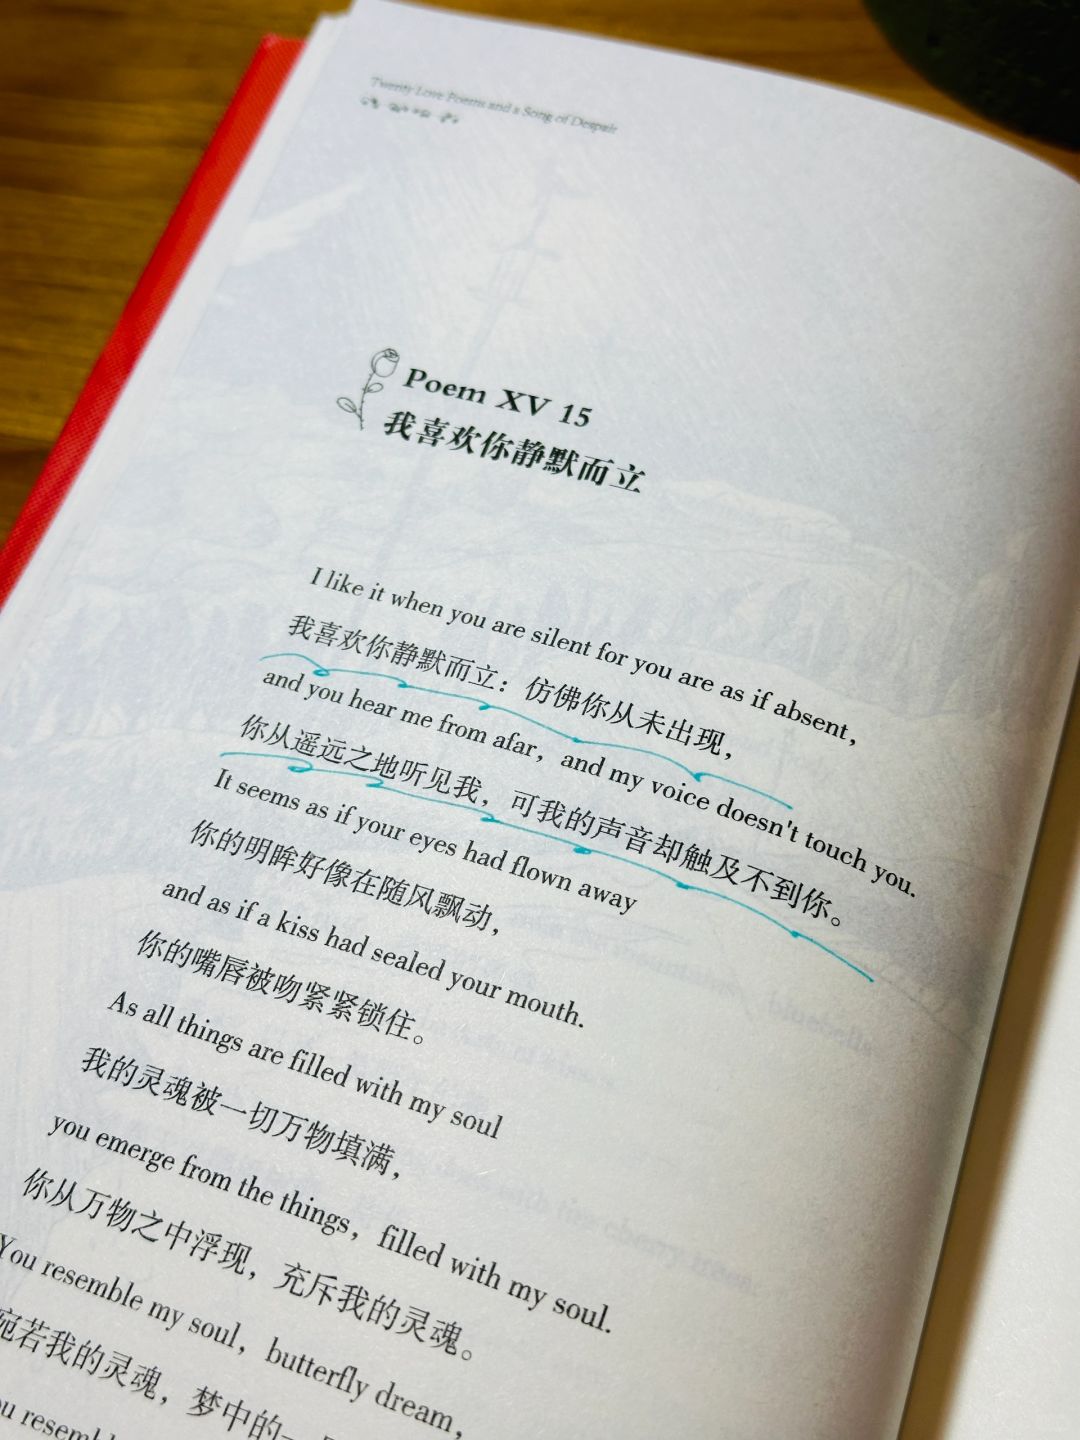 Twenty Love Poems and a Song of Despair
Poem XV 15
我喜欢你静默而立
I like it when you are silent for you are as if absent,
我喜欢你静默而立：仿佛你从未出现，
and you hear me from afar，and my voice doesn't touch you.
你从遥远之地听见我，可我的声音却触及不到你。
It seems as if your eyes had flown away
你的明眸好像在随风飘动，
and as if a kiss had sealed your mouth.
你的嘴唇被吻紧紧锁住。
As all things are filled with my soul
我的灵魂被一切万物填满，
you emerge from the things，filled with my soul.
你从万物之中浮现，充斥我的灵魂。
You resemble my soul，butterfly dream，
宛若我的灵魂，梦中的一